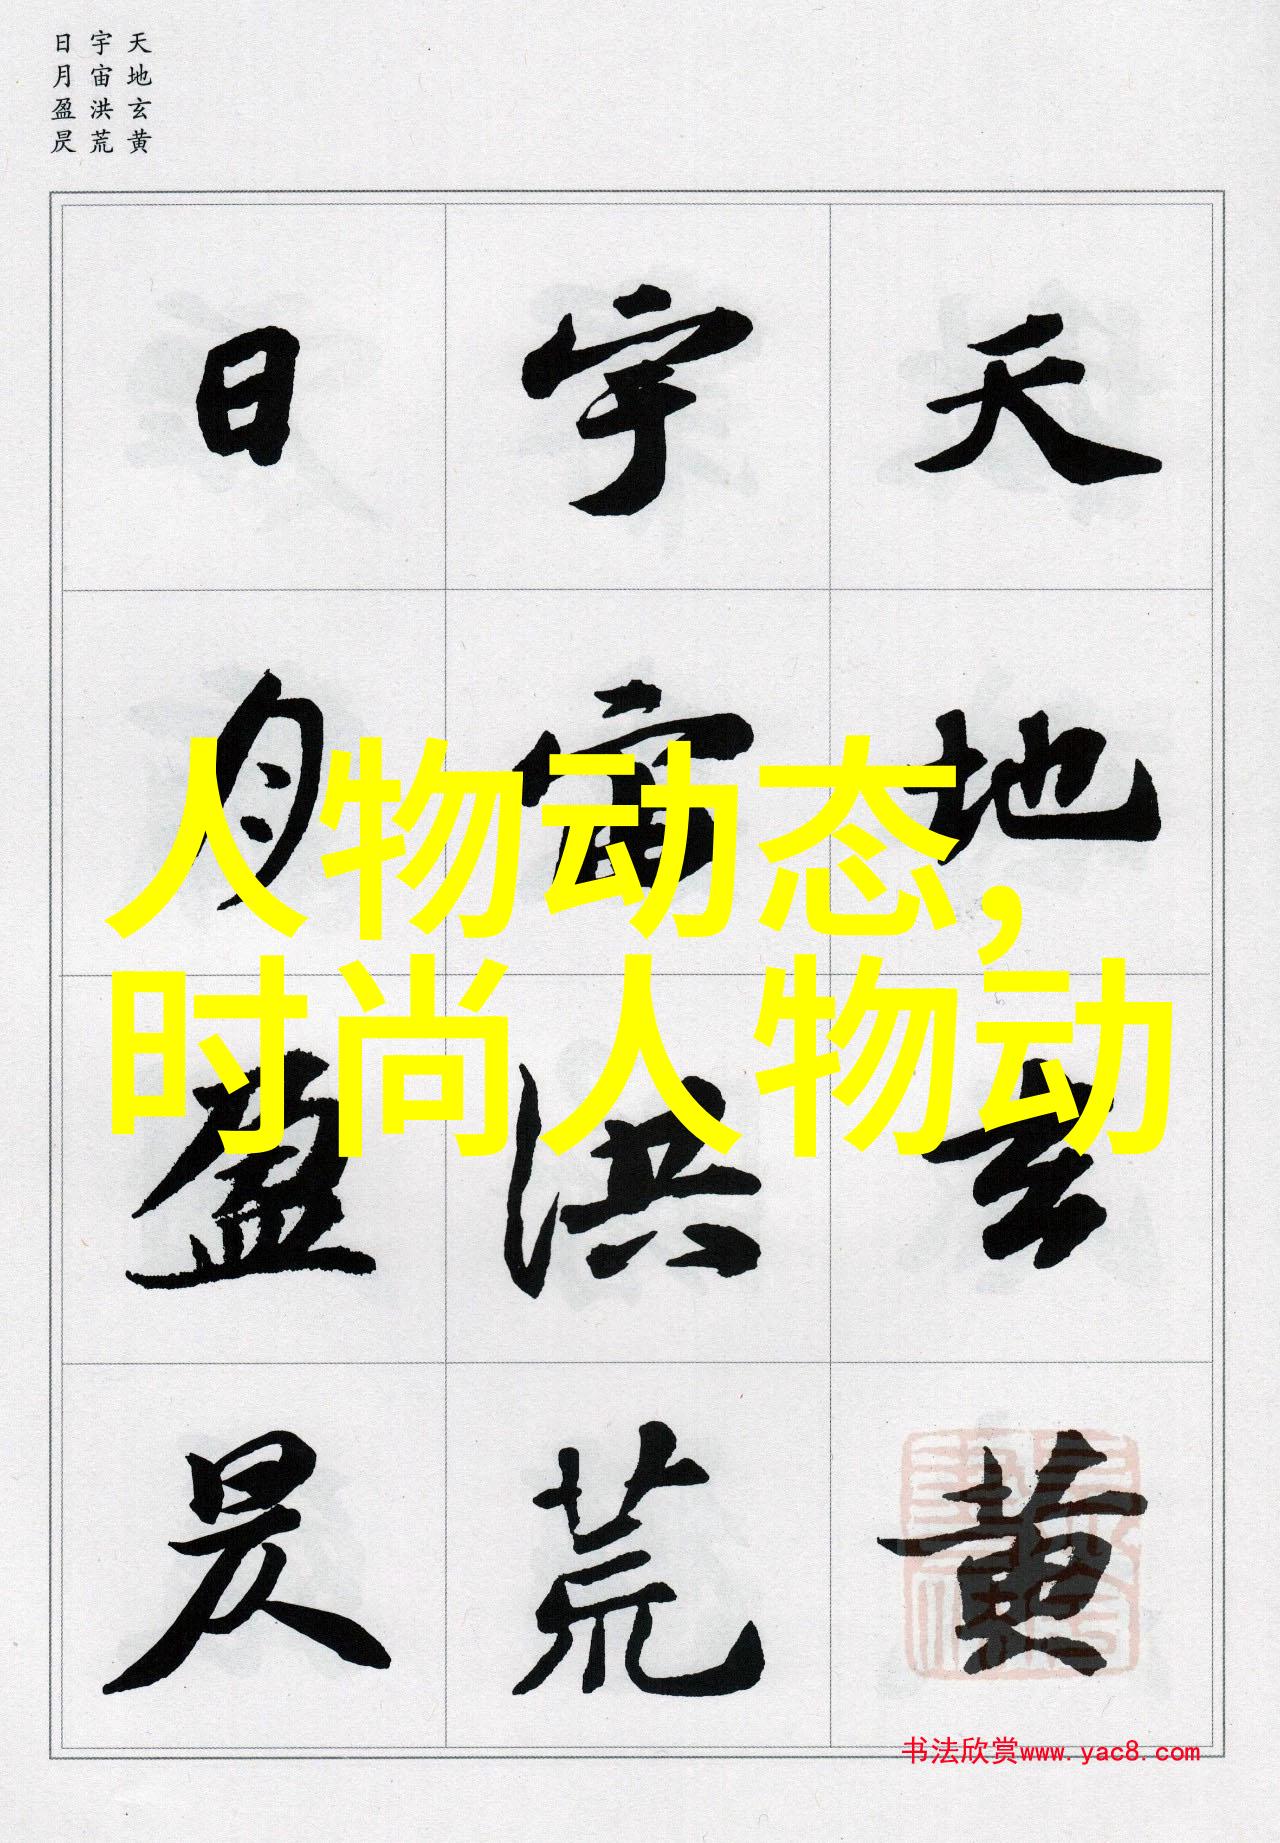 天地玄黄
宇宙洪荒
日月盈昃
天地玄黄
宇宙洪荒
日月盈昃
人物动态,
时尚人物动
书法欣赏www.yac8.com